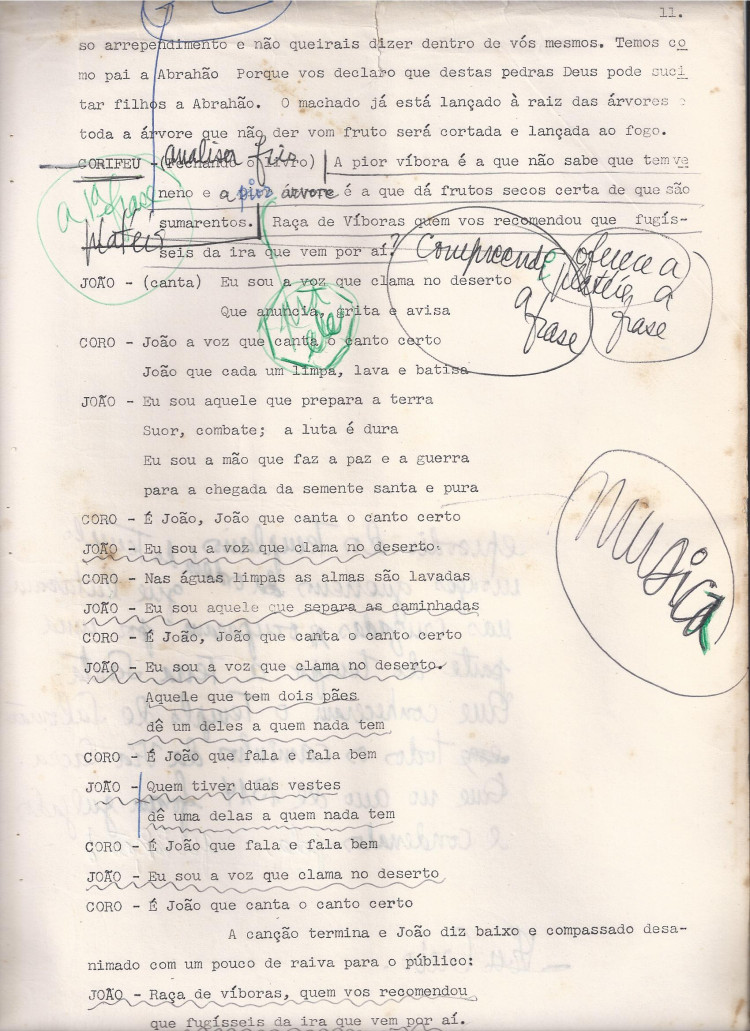 11.
so arrependimento e não queirais dizer dentro de vós mesmos. Temos co
mo pai a Abrahão  Porque vos declaro que destas pedras Deus pode suci
tar filhos a Abrahão.  O machado já está lançado à raiz das árvores e
toda a árvore que não der vom fruto será cortada e lançada ao fogo.
CORIFEU - (Fechando o livro) A pior víbora é a que não sabe que tem ve
analisa
neno e a pior árvore é a que dá frutos secos certa de que são
a 1ª frase
sumarentos.  Raça de Víboras quem vos recomendou que  fugís-
plateia
seis da ira que vem por aí?
Compreende
a
frase
oferece a
plateia a
frase
JOÃO - (canta)  Eu sou a voz que clama no deserto
Que anuncia, grita e avisa
CORO - João a voz que canta o canto certo
João que cada um limpa, lava e batisa
JOÃO - Eu sou aquele que prepara a terra
Suor, combate;  a luta é dura
Eu sou a mão que faz a paz e a guerra
para a chegada da semente santa e pura
CORO - É João, João que canta o canto certo
Musica
JOÃO - Eu sou a voz que clama no deserto.
CORO - Nas águas limpas as almas são lavadas
JOÃO - Eu sou aquele que separa as caminhadas
CORO - É João, João que canta o canto certo
JOÃO - Eu sou a voz que clama no deserto.
Aquele que tem dois pães
dê um deles a quem nada tem
CORO - É João que fala e fala bem
JOÃO - Quem tiver duas vestes
dê uma delas a quem nada tem
CORO - É João que fala e fala bem
JOÃO - Eu sou a voz que clama no deserto
CORO - É João que canta o canto certo
A canção termina e João diz baixo e compassado desa-
nimado com um pouco de raiva para o público:
JOÃO - Raça de víboras, quem vos recomendou
que fugísseis da ira que vem por aí.